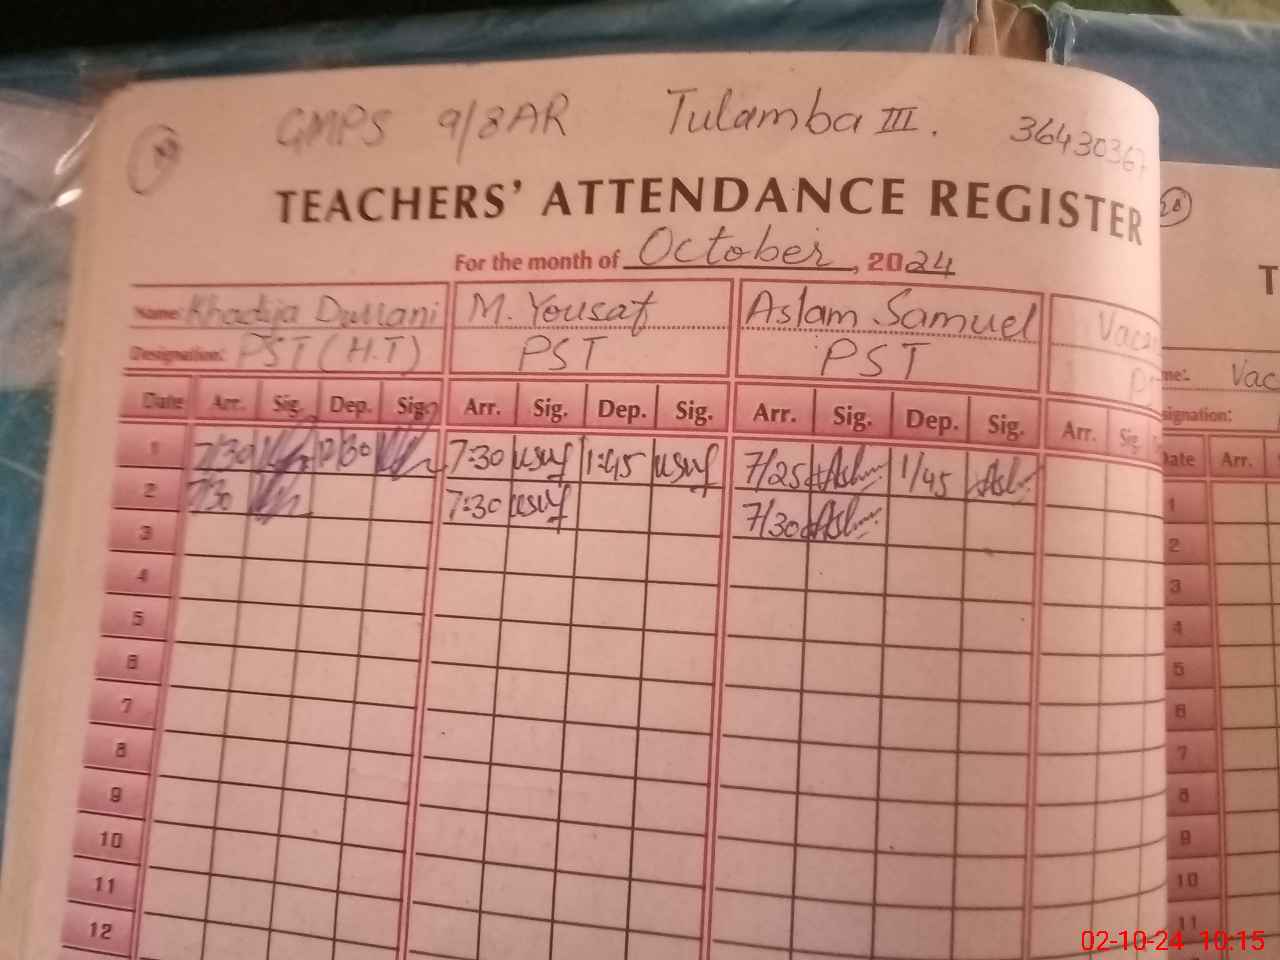 GMPS 9/8AR Tulamba III. 36430367
TEACHERS' ATTENDANCE REGISTER
For the month of October, 2024
Name: Khadija Durrani M. Yousaf Aslam Samuel
Designation: PST (H.T) PST PST
Date Arr. Sig. Dep. Sig. Arr. Sig. Dep. Sig. Arr. Sig. Dep. Sig. Arr. Sig.
1 7/30 7:30 usuf 1:45 usuf 7/25 1/45
2 7/30 7:30 usuf 7/30
3
4
5
6
7
8
9
10
11
12
28
T
Vac
Date Arr.
1
2
3
4
5
6
7
8
9
10
11
02-10-24 10:15